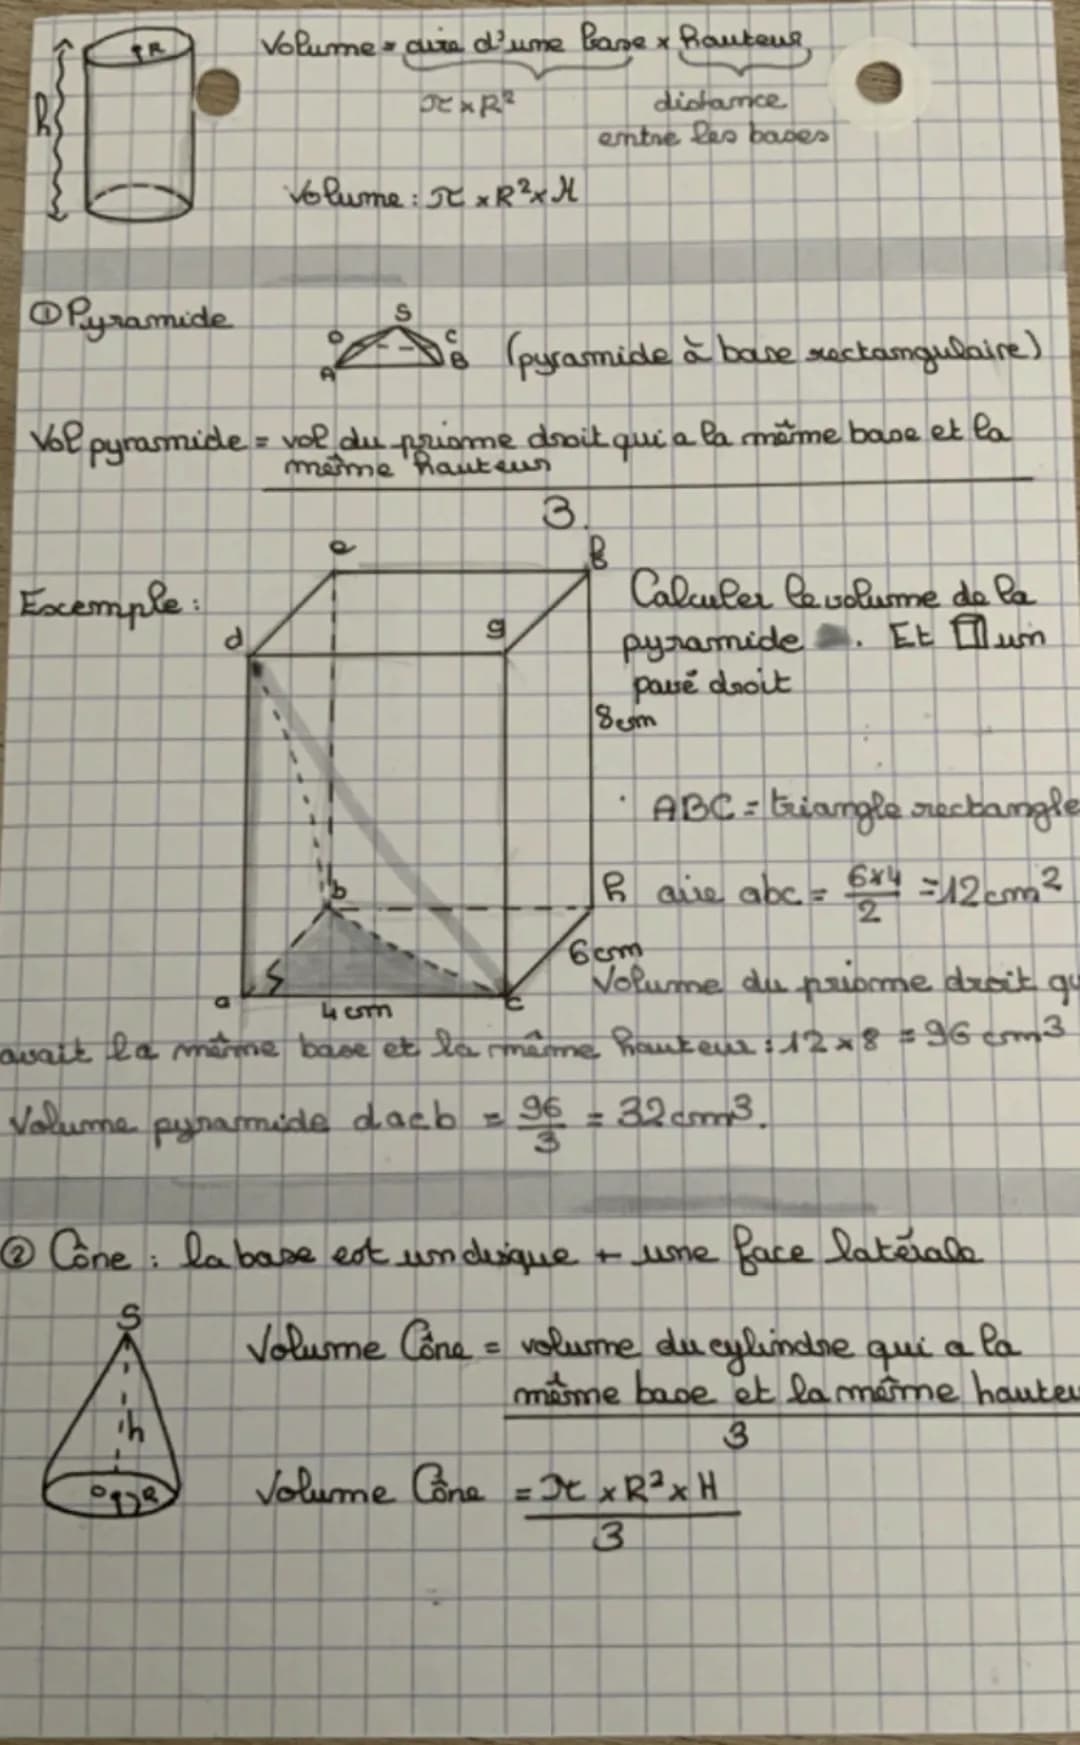 Volume = aire d'une base x hauteur
h
R
π x R²
distance
entre les bases
Volume : π x R² x H
① Pyramide
S
D
C
A
B
(pyramide à base rectangulaire)
Vol pyramide = vol du prisme droit qui a la même base et la
même hauteur
3.
Exemple :
e
f
d
g
Calculer le volume de la
pyramide . Et un
pavé droit
8cm
ABC = triangle rectangle
b
h
aire abc = 6x4/2 = 12cm²
6cm
a
4 cm
c
Volume du prisme droit qu
avait la même base et la même hauteur : 12 x 8 = 96 cm³
Volume pyramide dacb = 96/3 = 32cm³.
② Cône : la base est un disque + une face latérale
S
h
O
R
Volume Cône = volume du cylindre qui a la
même base et la même hauteu
3
Volume Cône = π x R² x H
3